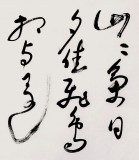 山氣日
夕佳飛鳥
相与還